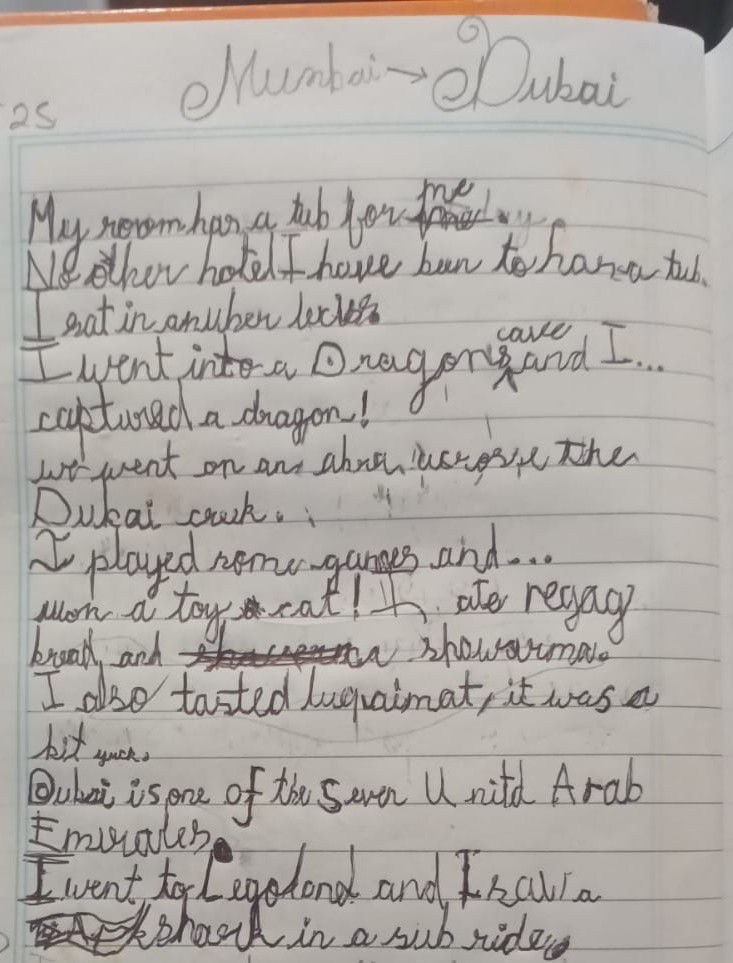 Mumbai → Dubai
25
My room has a tub for me
No other hotel I have been to has a tub.
I sat in an uber lexus
I went into a Dragons cave and I...
captured a dragon!
we went on an abra across the
Dubai creek.
I played some games and...
won a toy cat! I ate regag
bread, and showarma.
I also tasted luqaimat, it was a
bit yuck.
Dubai is one of the Seven Unitd Arab
Emirates.
I went to Legoland and I saw a
shark in a sub ride.